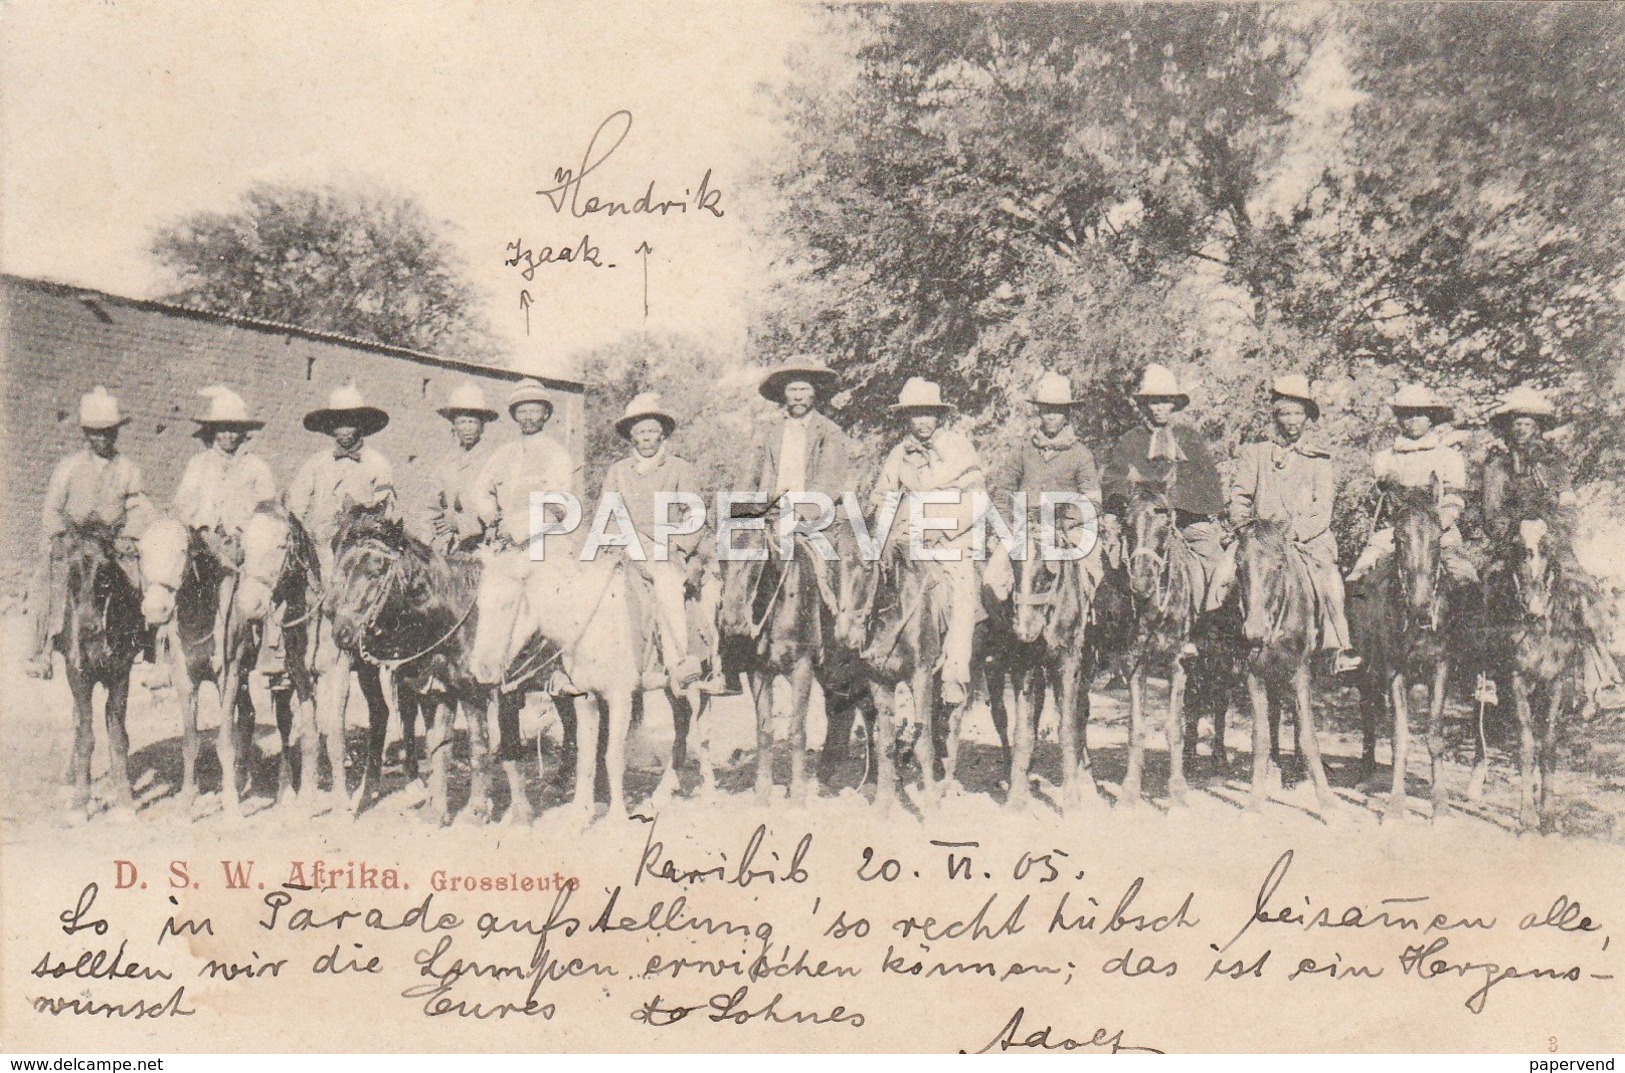 Hendrik
Izaak.
PAPERVEND
D. S. W. Afrika. Grossleute
Karibib 20. VI. 05.
So, in Paradeaufstellung, so recht hübsch beisam̄en alle,
sollten wir die Lumpen erwischen können; das ist ein Herzens-
wunsch Eures Sohnes
Adolf
3
delcampe.net
papervend